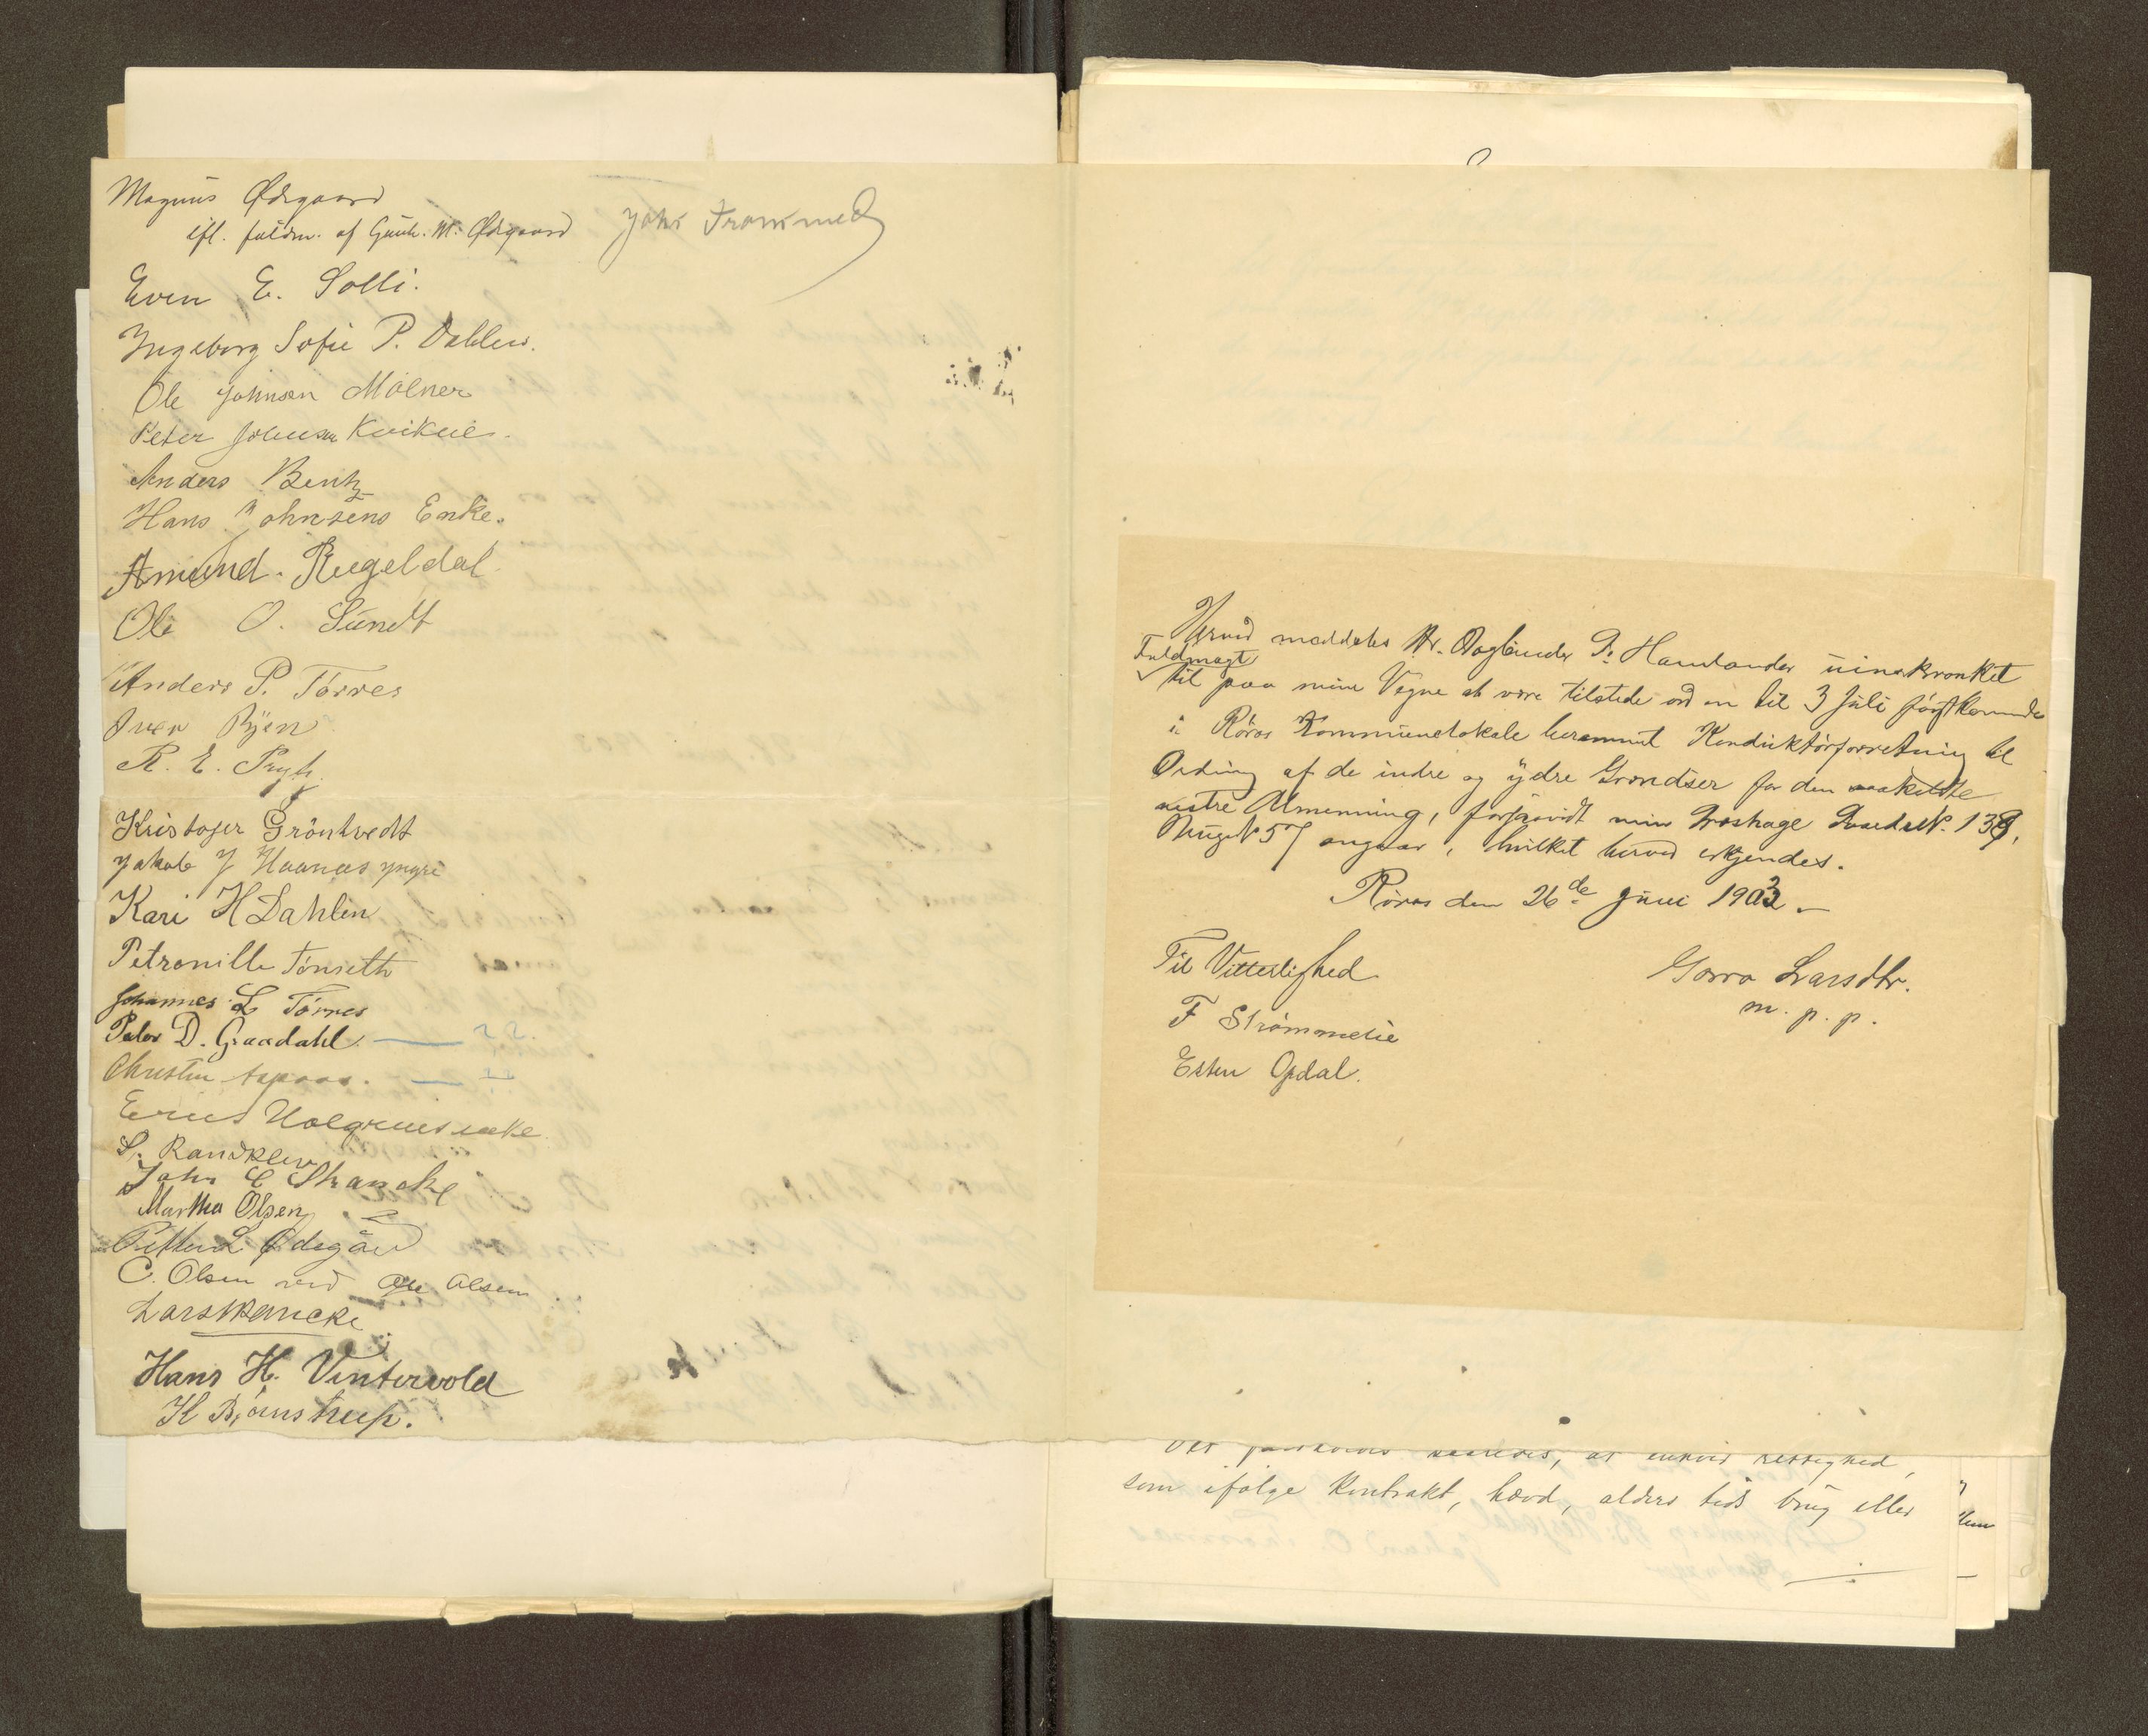 Magnus Ødegaard
ifl. fuldm. af Gunh. M. Ødegaard
John Trønnæs
Even E. Solli.
Ingeborg Sofie P. Dahlen.
Ole Johnsen Mølner
Peter Johnsen Kvikne.
Anders Bentz
Hans Johnsens Enke.
Amund. Rugeldal.
Ole O. Sundt
Anders P. Tørres
Iver Ryen
R. E. Prytz.
Kristofer Grönhvedt
Jakob J Haanæs yngre
Kari H Dahlen
Petronille Tønseth
Johannes L Tørres
Peder D. Graadahl. — 22.
Christen Aspaas. —
Eriks Holgrens enke.
S. Randklev
John E Skancke
Martha Olsen
Petter L Ødegård
C. Olsen ved Ole Olsen
Lars Skancke
Hans H. Vintervold
H Bjørnstrup.
Herved meddeles Hr. P. Hamlander uindskrænket
Fuldmagt
til paa mine Vegne at være tilstede ved en til 3 Juli førstkommende
i Røros Kommunelokale berammet Konduktørforretning til
Ordning af de indre og ydre Grændser for den saakaldte
vestre Almenning, forsaavidt min Løshage No. 138,
Brugs N 57 angaar, hvilket herved erkjendes.
Røros den 26de Juni 1903 –
Til Vitterlighed
Gorro Larsdtr.
m. p. p.
F Strømmelie
Esten Opdal.
at enhver rettighed,
som ifølge Kontrakt, hævd, alders tids brug eller